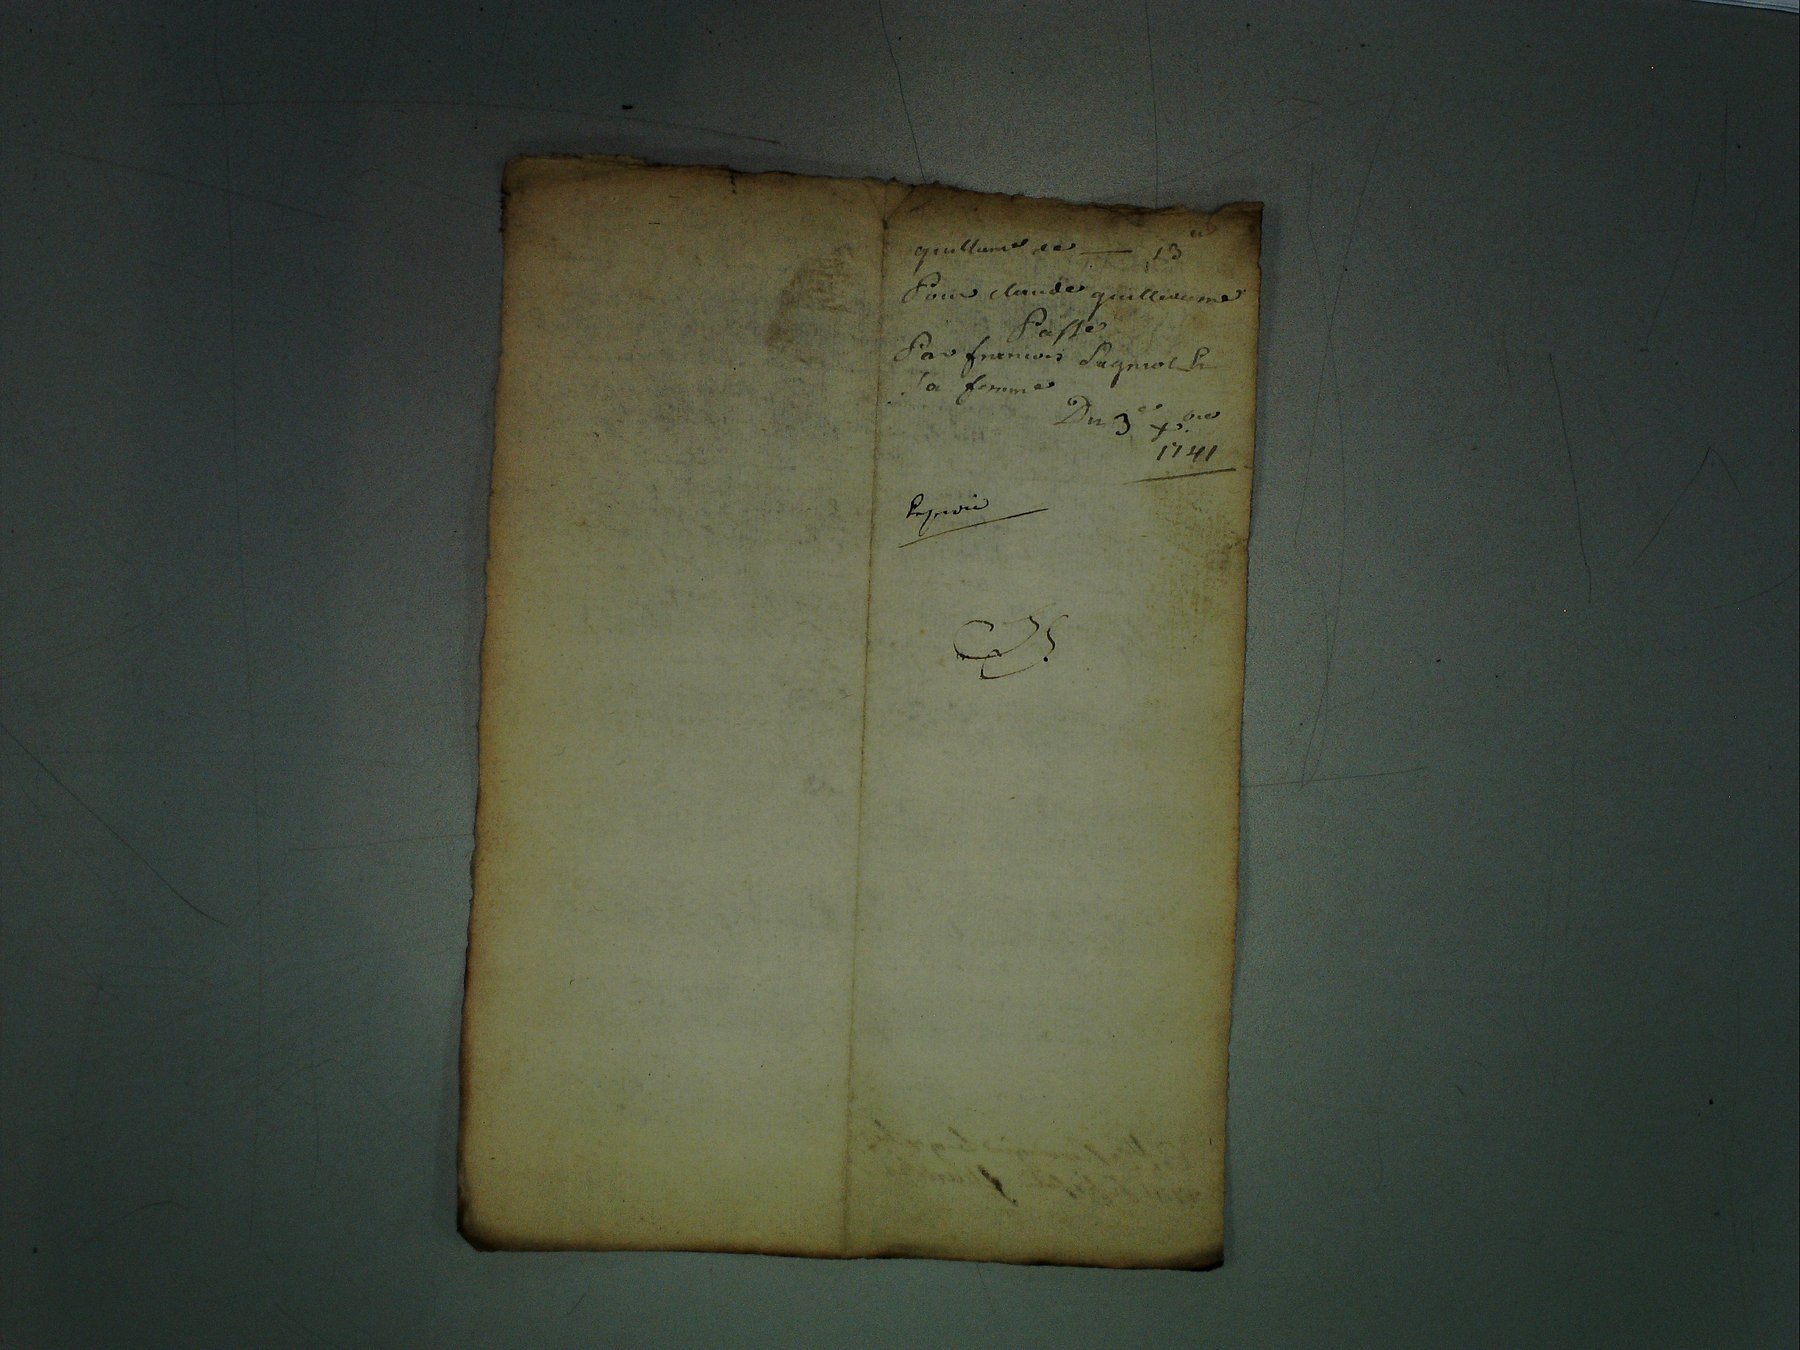 quittance de — 13ᵗᵗ
Pour claude guilliaume
Passé
Par francois Lagniol Et
sa femme
Du 3ᵉ xbre
1741
Expedié